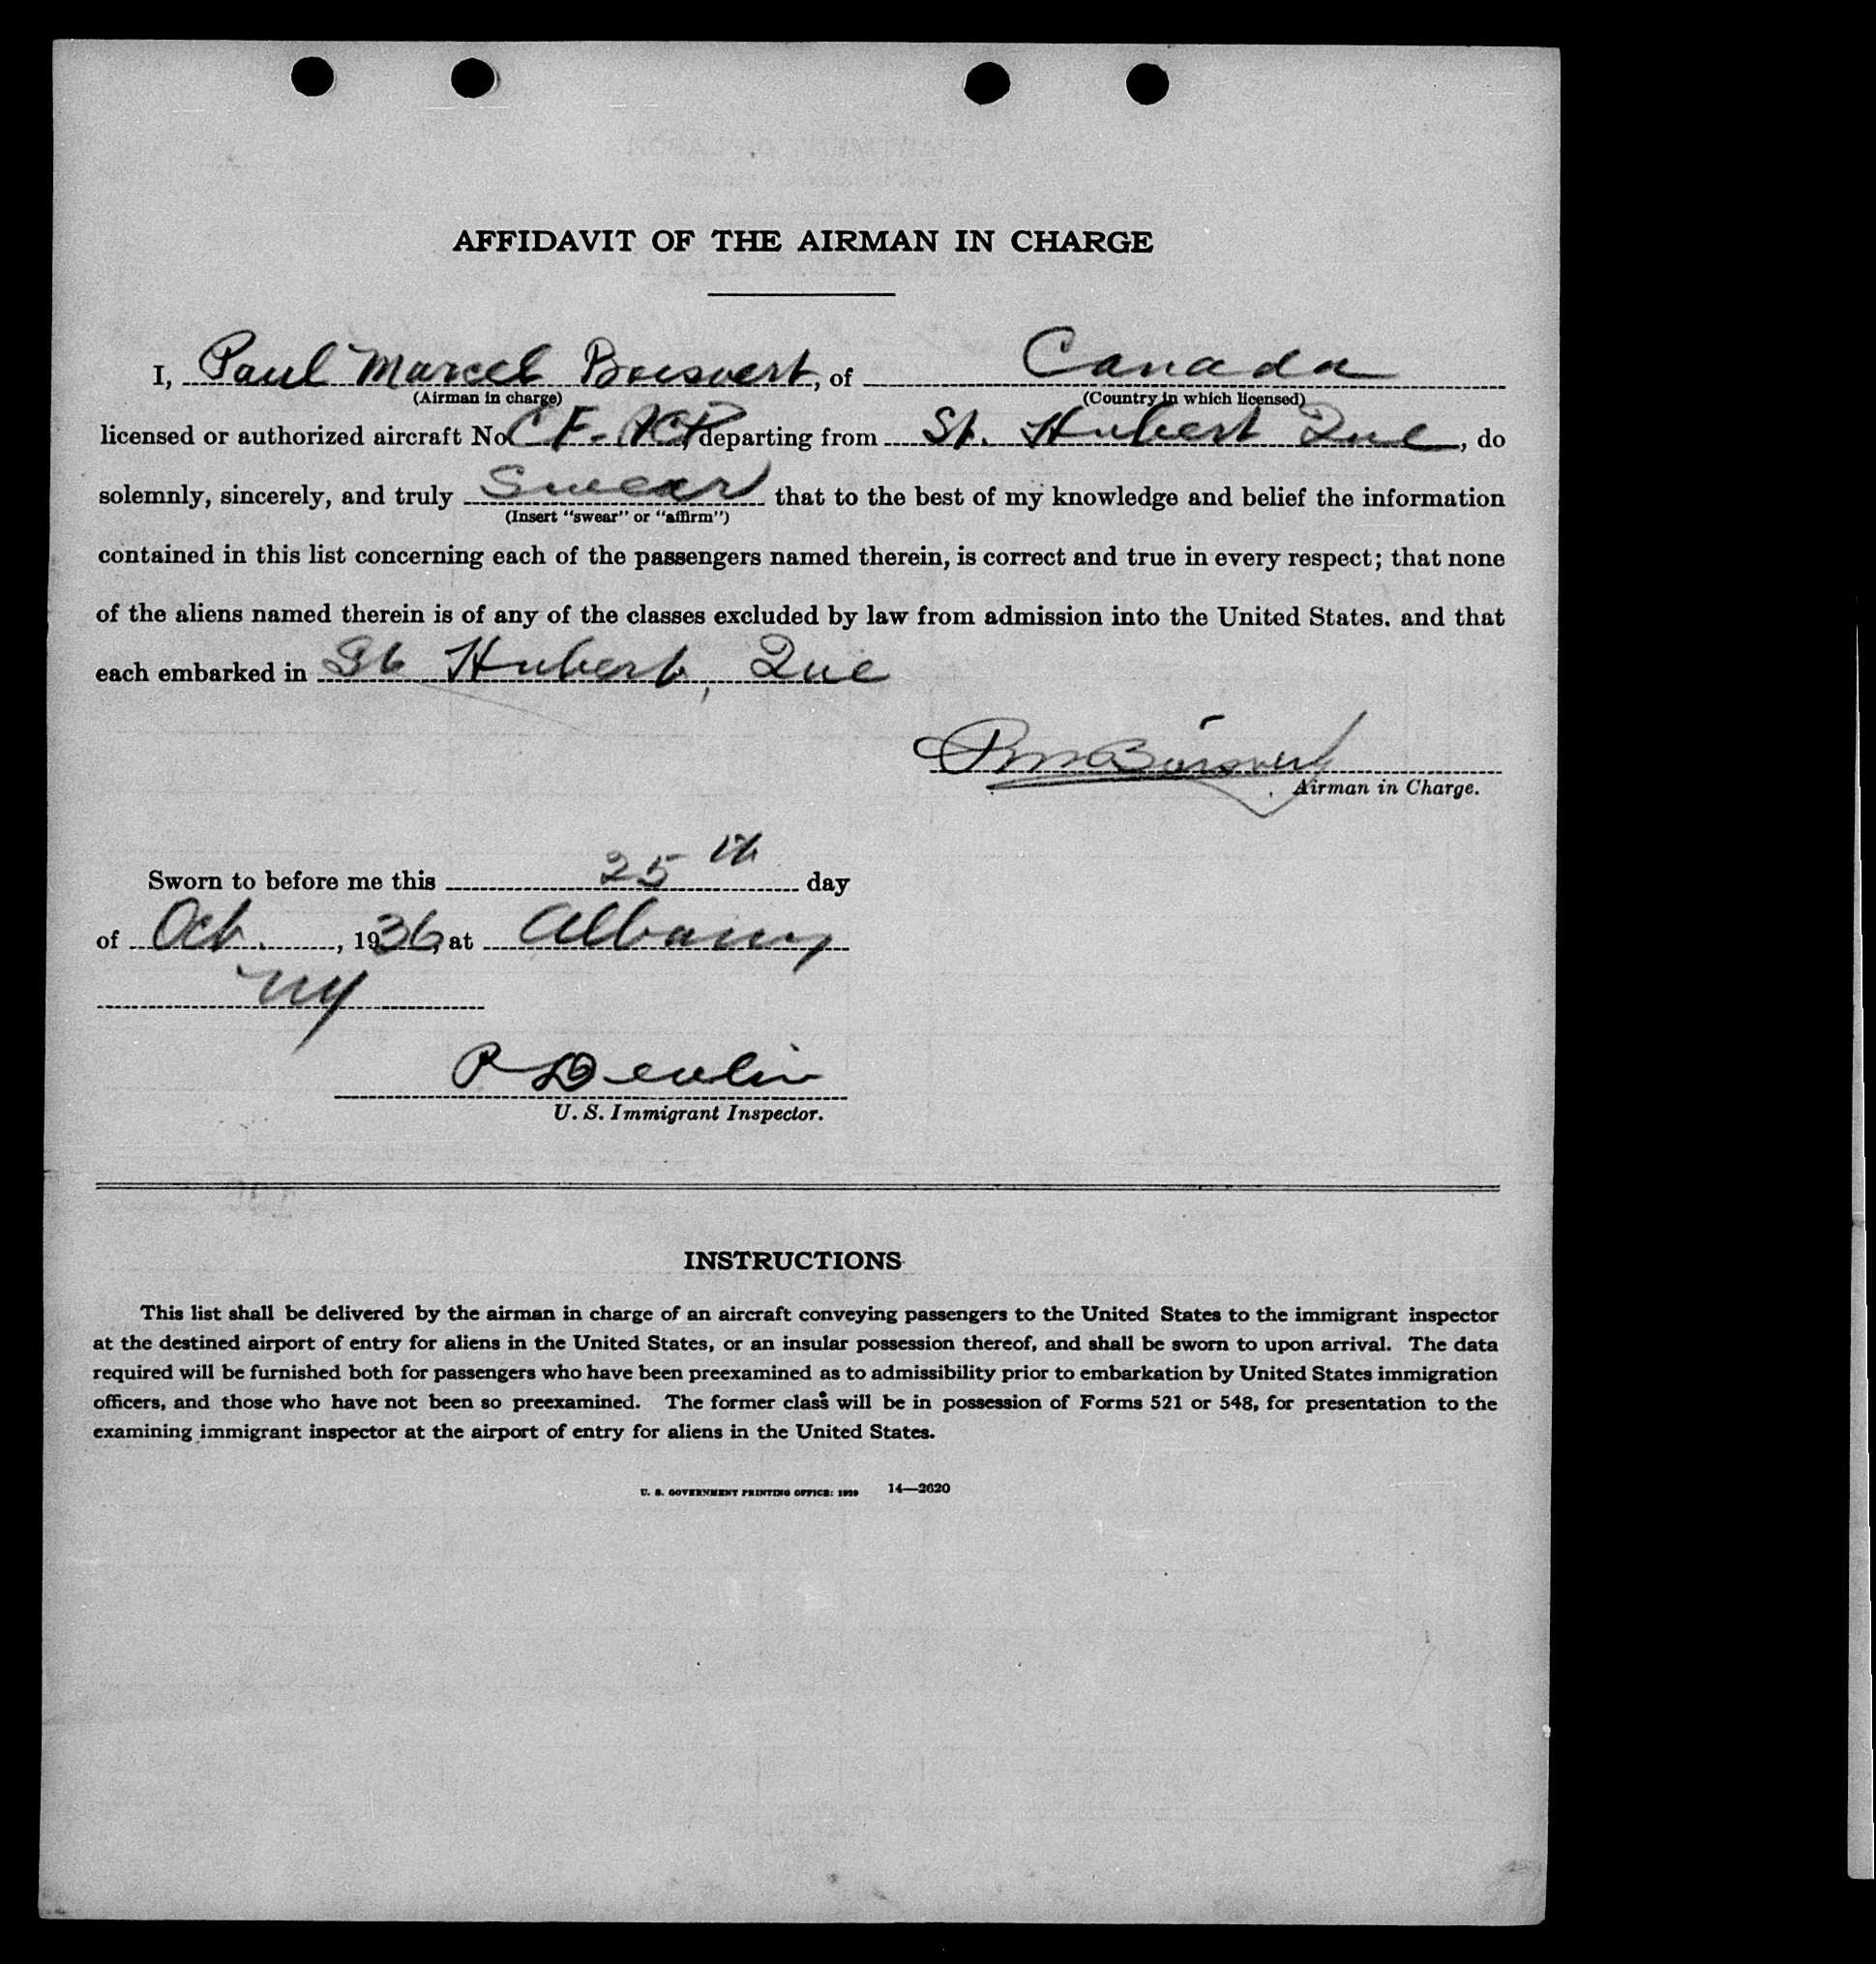 AFFIDAVIT OF THE AIRMAN IN CHARGE
I, Paul Marcel Boisvert, of Canada
(Airman in charge) (Country in which licensed)
licensed or authorized aircraft No. CF- departing from St. Hubert Que, do
solemnly, sincerely, and truly Swear that to the best of my knowledge and belief the information
(Insert "swear" or "affirm")
contained in this list concerning each of the passengers named therein, is correct and true in every respect; that none
of the aliens named therein is of any of the classes excluded by law from admission into the United States. and that
each embarked in St Hubert, Que
PM Boisvert
Airman in Charge.
Sworn to before me this 25th day
of Oct., 1936, at Albany
NY
P Devlin
U. S. Immigrant Inspector.
INSTRUCTIONS
This list shall be delivered by the airman in charge of an aircraft conveying passengers to the United States to the immigrant inspector
at the destined airport of entry for aliens in the United States, or an insular possession thereof, and shall be sworn to upon arrival. The data
required will be furnished both for passengers who have been preexamined as to admissibility prior to embarkation by United States immigration
officers, and those who have not been so preexamined. The former class will be in possession of Forms 521 or 548, for presentation to the
examining immigrant inspector at the airport of entry for aliens in the United States.
U. S. GOVERNMENT PRINTING OFFICE: 1929 14—2620